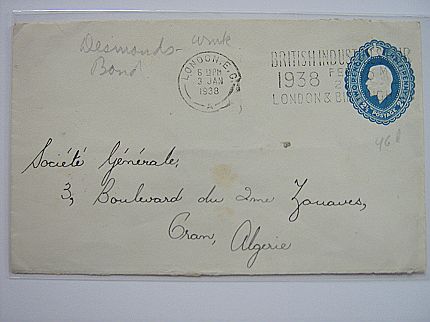 Desmonds-
Bond
LONDON. E.C.
6 PM
3 JAN
1938
-A-
BRITISH INDUS
1938 FE
LONDON & BI
POSTAGE
Société Générale,
3, Boulevard du 2me Zouaves,
Oran, Algerie